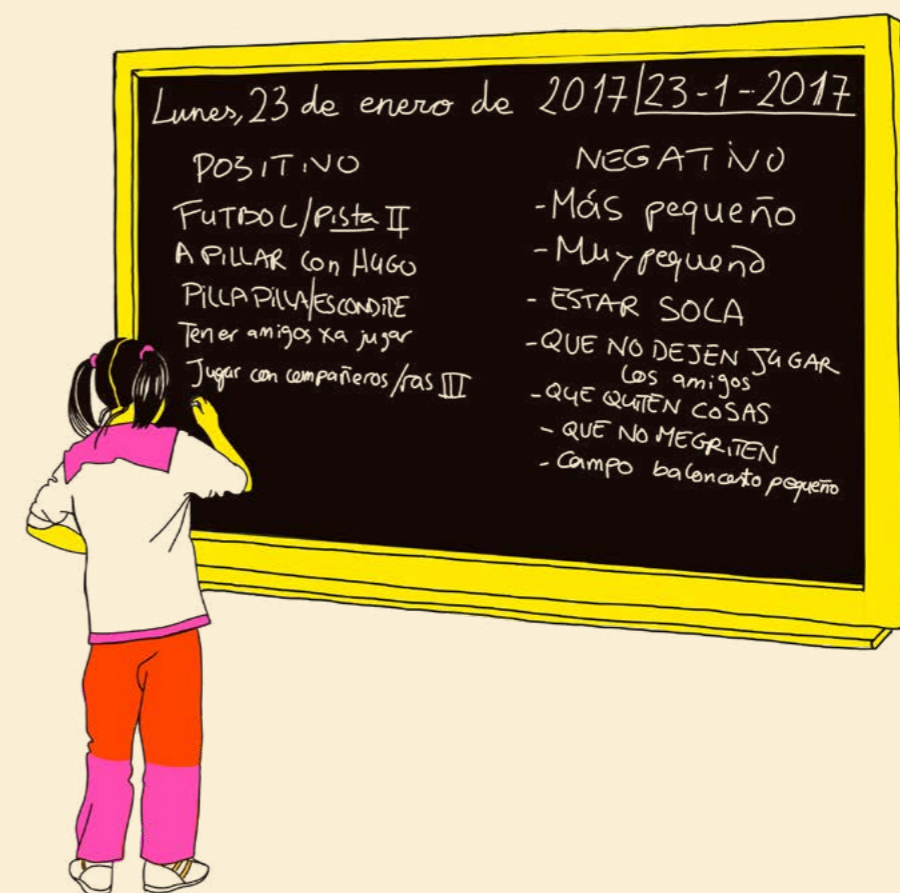 Lunes, 23 de enero de 2017 | 23-1-2017
POSITIVO
FUTBOL/Pista II
A PILLAR con HUGO
PILLA PILLA/ESCONDITE
Tener amigos xa jugar
Jugar con compañeros/ras III
NEGATIVO
-Más pequeño
-Muy pequeño
- ESTAR SOLA
-QUE NO DEJEN JUGAR
Los amigos
-QUE QUITEN COSAS
- QUE NO ME GRITEN
- Campo baloncesto pequeño